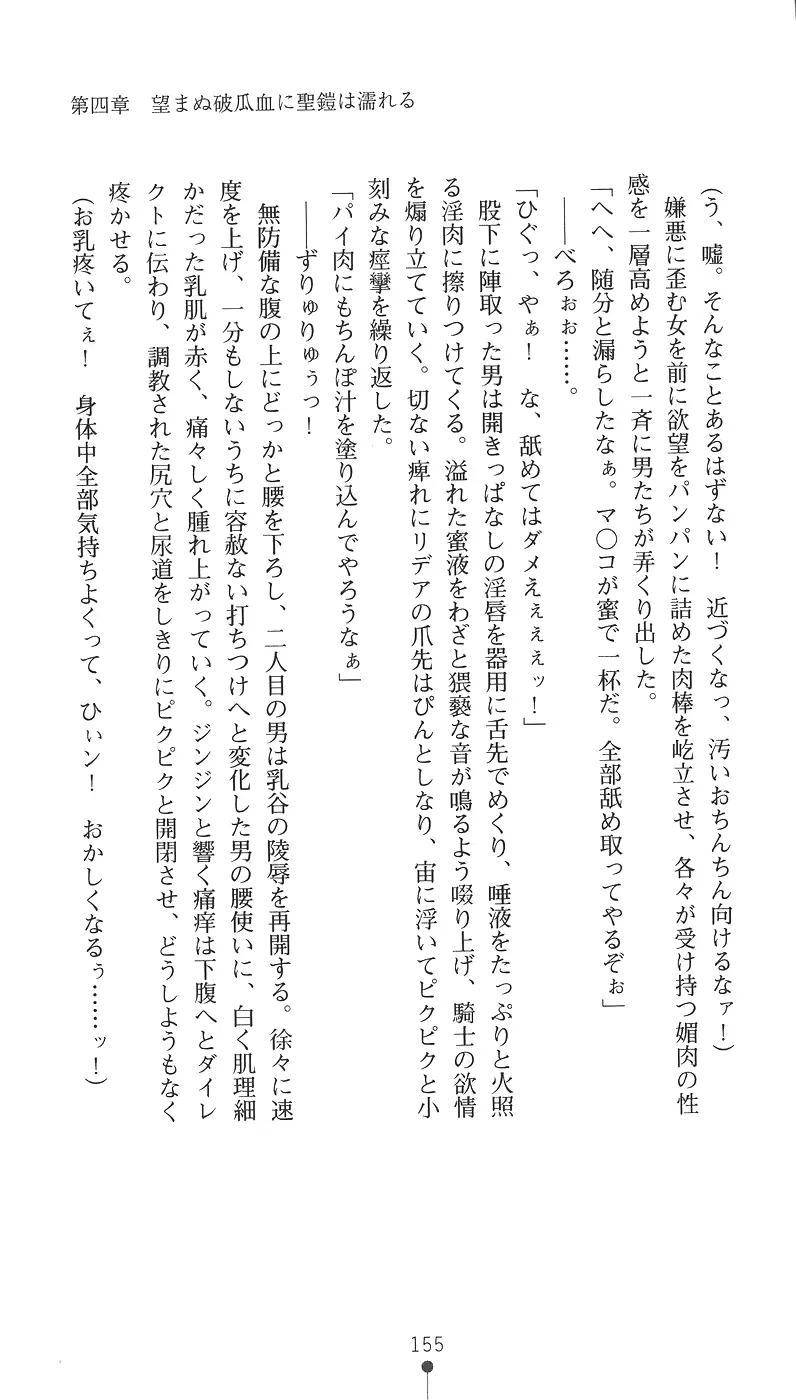 第四章　望まぬ破瓜血に聖鎧は濡れる
(う、嘘。そんなことあるはずない！　近づくなっ、汚いおちんちん向けるなァ！)
　嫌悪に歪む女を前に欲望をパンパンに詰めた肉棒を屹立させ、各々が受け持つ媚肉の性
感を一層高めようと一斉に男たちが弄くり出した。
「へへ、随分と漏らしたなぁ。マ○コが蜜で一杯だ。全部舐め取ってやるぞぉ」
　――べろぉぉ……。
「ひぐっ、やぁ！　な、舐めてはダメえぇぇぇッ！」
　股下に陣取った男は開きっぱなしの淫唇を器用に舌先でめくり、唾液をたっぷりと火照
る淫肉に擦りつけてくる。溢れた蜜液をわざと猥褻な音が鳴るよう啜り上げ、騎士の欲情
を煽り立てていく。切ない痺れにリデアの爪先はぴんとしなり、宙に浮いてピクピクと小
刻みな痙攣を繰り返した。
「パイ肉にもちんぽ汁を塗り込んでやろうなぁ」
　――ずりゅりゅぅっ！
　無防備な腹の上にどっかと腰を下ろし、二人目の男は乳谷の陵辱を再開する。徐々に速
度を上げ、一分もしないうちに容赦ない打ちつけへと変化した男の腰使いに、白く肌理細
かだった乳肌が赤く、痛々しく腫れ上がっていく。ジンジンと響く痛痒は下腹へとダイレ
クトに伝わり、調教された尻穴と尿道をしきりにピクピクと開閉させ、どうしようもなく
疼かせる。
(お乳疼いてぇ！　身体中全部気持ちよくって、ひぃン！　おかしくなるぅ……ッ！)
155